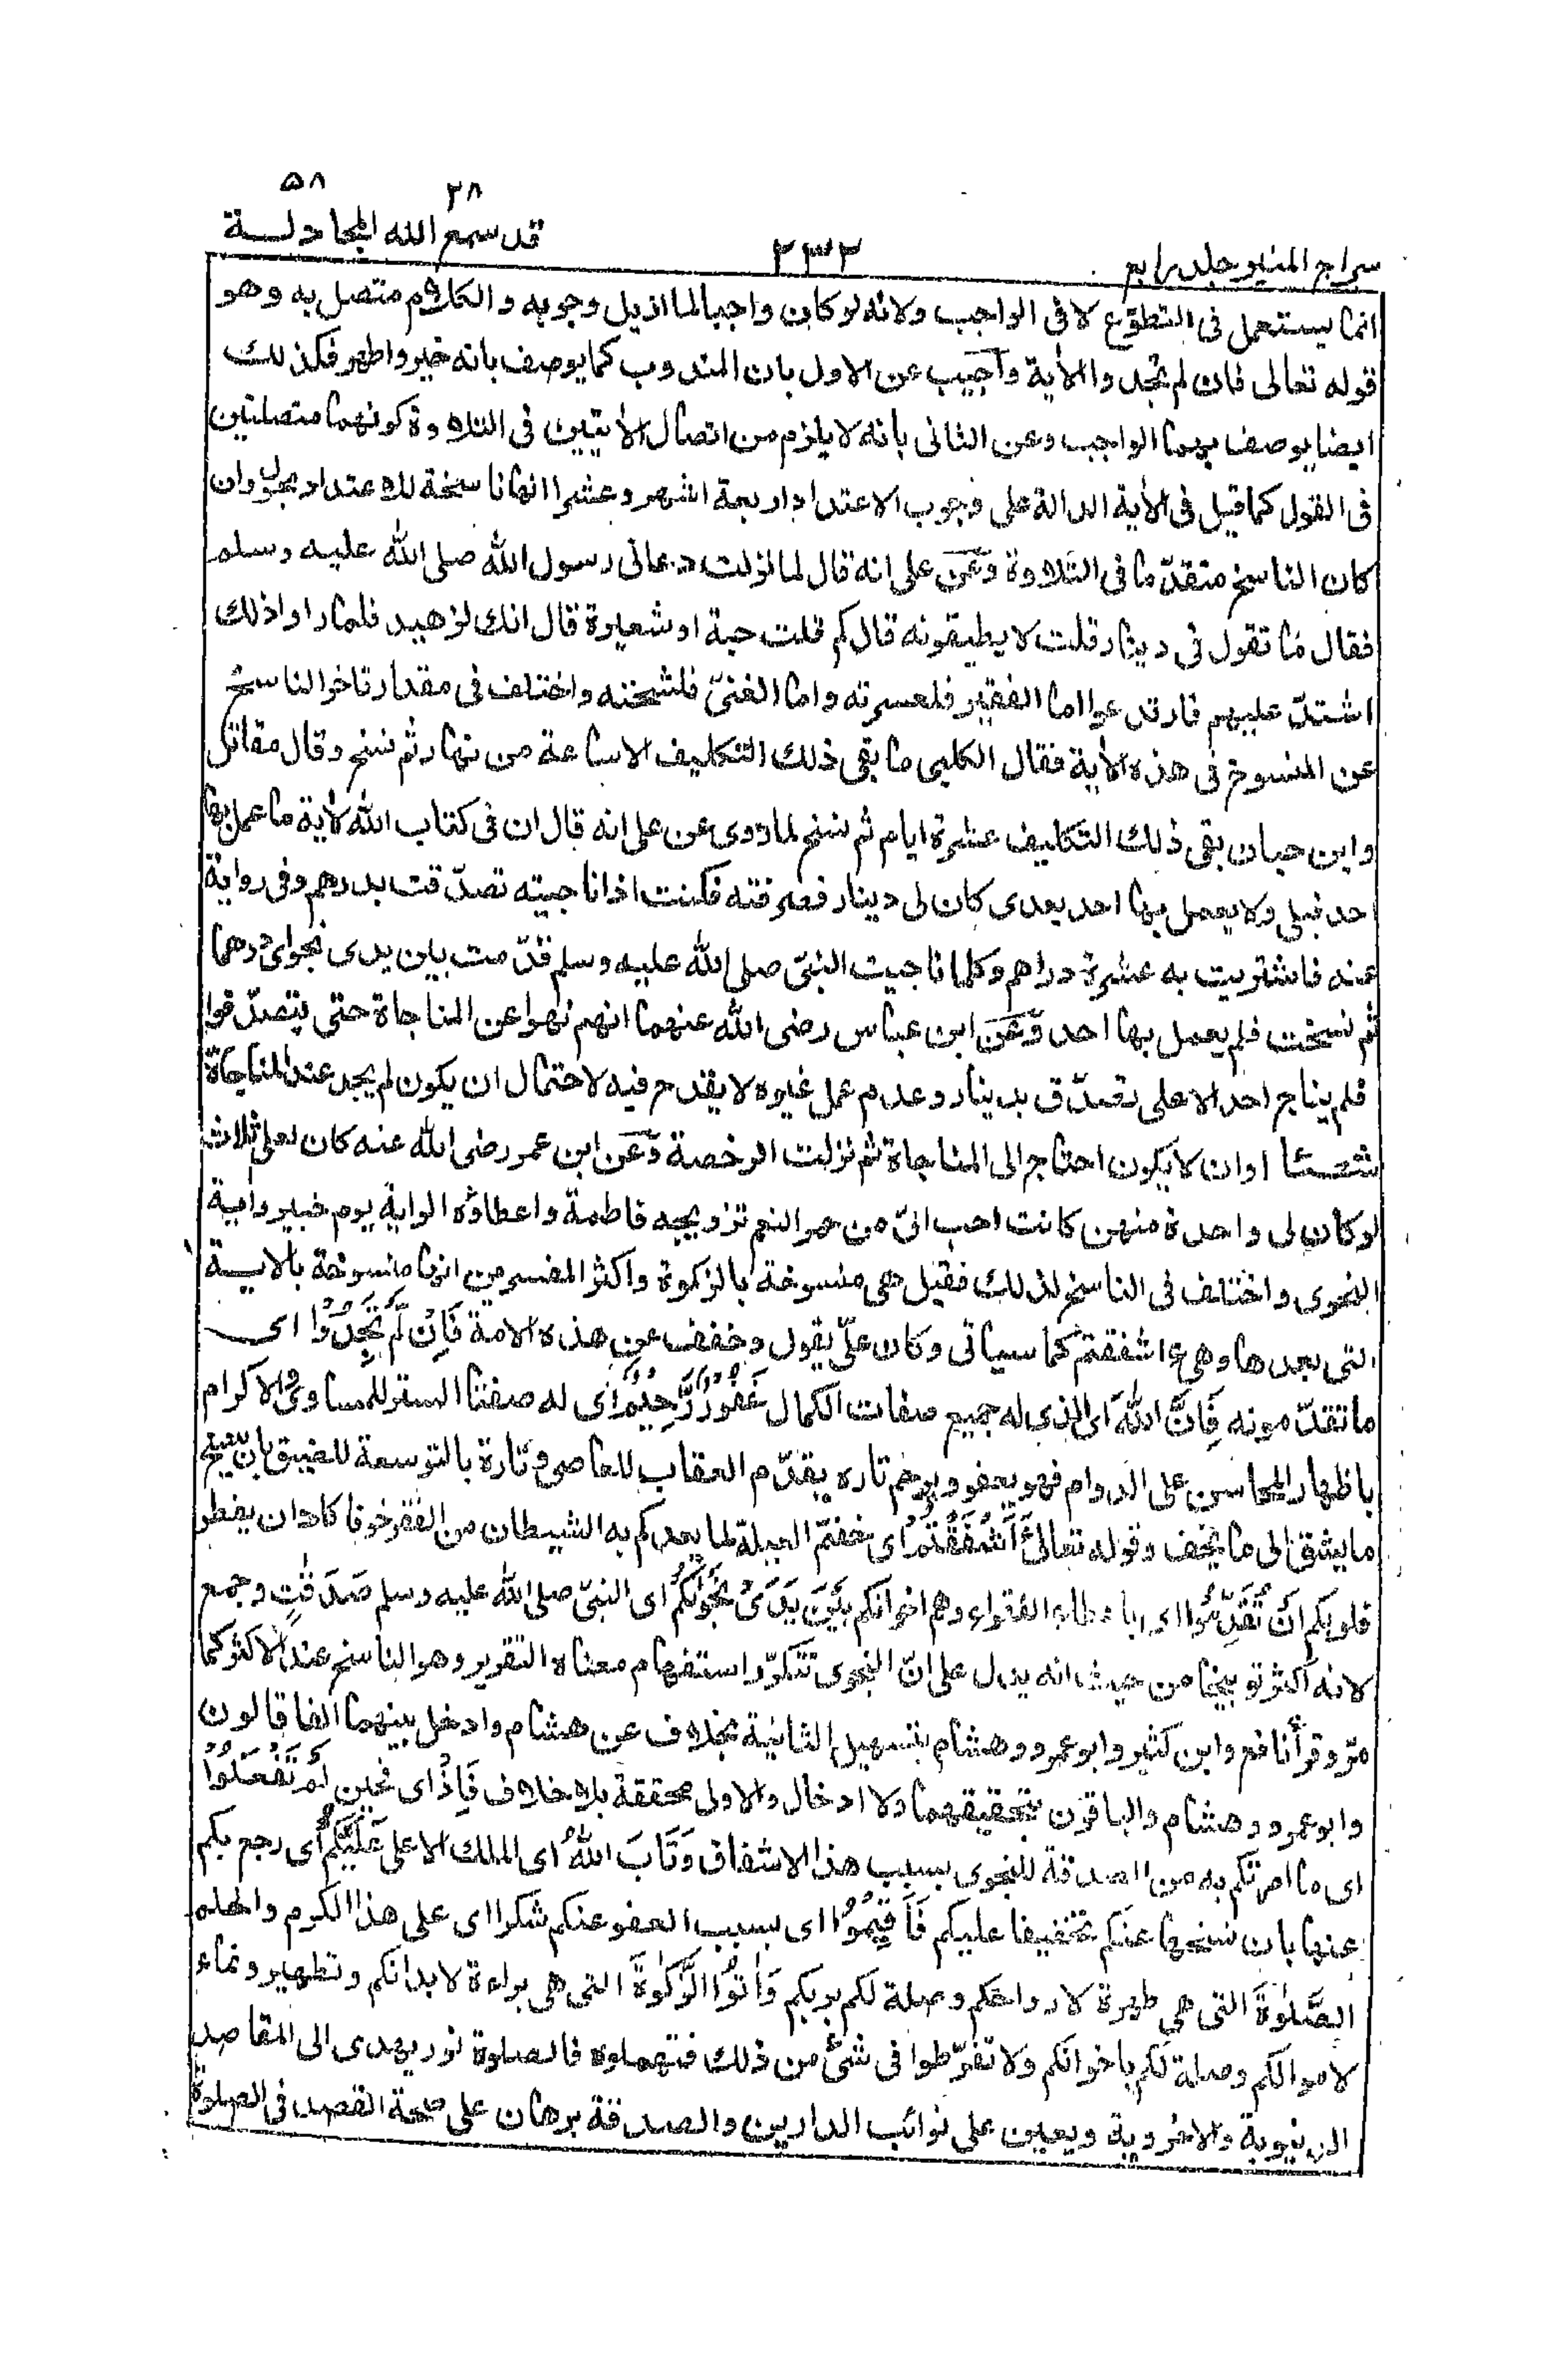 ۵۸
۲۸
سراج المنير جلد رابع
۲۳۲
قد سمع الله المجادلة
انما يستعمل فى التطوّع لا فى الواجب ولانه لو كان واجبا لما ازيل وجوبه والكلام متصل به وهو
قوله تعالى فان لم تجدوا الاٰية وآجيب عن الاول بان المندوب كما يوصف بانه خير واطهر فكذلك
ايضا يوصف بهما الواجب وعن الثانى بانه لا يلزم من اتصال الاٰيتين فى التلاوة كونهما متصلتين
فى القول كما قيل فى الاٰية الدالة على وجوب الاعتداد اربعة اشهر وعشرا انها ناسخة للاعتداد بحول وان
كان الناسخ متقدّما فى التلاوة وعن على انه قال لما نزلت دعانى رسول الله صلى الله عليه وسلم
فقال ما تقول فى دينار قلت لا يطيقونه قال كم قلت حبة او شعيرة قال انك لزهيد فلما راوا ذلك
اشتدّ عليهم فارتدعوا اما الفقير فلعسرته واما الغنىّ فلشحّته واختلف فى مقدار تاخر الناسخ
عن المنسوخ فى هذه الاٰية فقال الكلبى ما بقى ذلك التكليف الا ساعة من نهار ثم نسخ وقال مقاتل
وابن حيان بقى ذلك التكليف عشرة ايام ثم نسخ لما روى عن على انه قال ان فى كتاب الله لاٰية ما عمل بها
احد قبلى ولا يعمل بها احد بعدى كان لى دينار فصرفته فكنت اذا ناجيته تصدّقت بدرهم وفى رواية
عنه فاشتريت به عشرة دراهم وكلما ناجيت النبىّ صلى الله عليه وسلم قدّمت بين يدى نجواى درهما
ثم نسخت فلم يعمل بها احد وّعن ابن عباس رضى الله عنهما انهم نهوا عن المناجاة حتى يتصدّقوا
فلم يناج احد الا على تصدّق بدينار وعدم عمل غيره لا يقدح فيه لاحتمال ان يكون لم يجد عند المناجاة
شيئا او ان لا يكون احتاج الى المناجاة ثم نزلت الرخصة وّعن ابن عمر رضى الله عنه كان لعلى ثلاث
لو كان لى واحدة منهن كانت احب الىّ من حمر النعم تزويجه فاطمة واعطاؤه الراية يوم خيبر واٰية
النجوى واختلف فى الناسخ لذلك فقيل هى منسوخة بالزكوة واكثر المفسرين انها منسوخة بالاية
التى بعدها وهى ءاشفقتم كما سياتى وكان علىّ يقول وخفف عن هذه الامة فَاِنْ لَّمْ تَجِدُوْا اى
ما تقدّمونه فَاِنَّ اللهَ اى الذى له جميع صفات الكمال غَفُوْرٌ رَّحِيْمٌ اى له صفتا الستر للمساوى والاكرام
باظهار المحاسن على الدوام فهو يعفو ويرحم تاره يقدّم العقاب للعاصى وتارة بالتوسعة للضيق بان ينسخ
ما يشق الى ما يخف وقوله تعالىٰ ءَاَشْفَقْتُمْ اى خفتم العيلة لما يعدكم به الشيطان من الفقر خوفا كاد ان يفطر
قلوبكم اَنْ تُقَدِّمُوْا اى باعطاء الفقراء وهم اخوانكم بَيْنَ يَدَىْ نَجْوٰىكُمْ اى النبىّ صلى الله عليه وسلم صَدَقٰتٍ وجمع
لانه اكثر توبيخا من حيث انه يدل على انّ النجوى تتكرّر استفهام معناه التقرير وهو الناسخ عند الاكثر كما
مرّ وقرأ نافع وابن كثير وابو عمرو وهشام بتسهيل الثانية بخلاف عن هشام وادخل بينهما الفا قالون
وابو عمرو وهشام والباقون بتحقيقهما ولا ادخال والاولى محققة بلا خلاف فَاِذْ اى فحين لَمْ تَفْعَلُوْا
اى ما امرتكم به من الصدقة للنجوى بسبب هذا الاشفاق وَتَابَ اللهُ اى الملك الاعلى عَلَيْكُمْ اى رجع بكم
عنها بان نسخها عنكم تخفيفا عليكم فَاَقِيْمُوا اى بسبب العفو عنكم شكرا اى على هذا الكرم والحلم
الصَّلٰوةَ التى هى طهرة لارواحكم وصلة لكم بربكم وَاٰتُوا الزَّكٰوةَ التى هى براءة لابدانكم وتطهير ونماء
لاموالكم وصلة لكم باخوانكم ولا تفرّطوا فى شىٔ من ذلك فتهملوه فالصلوة نور يهدى الى المقاصد
الدنيوية والاخروية ويعين على نوائب الدارين والصدقة برهان على صحة القصد فى الصلوة